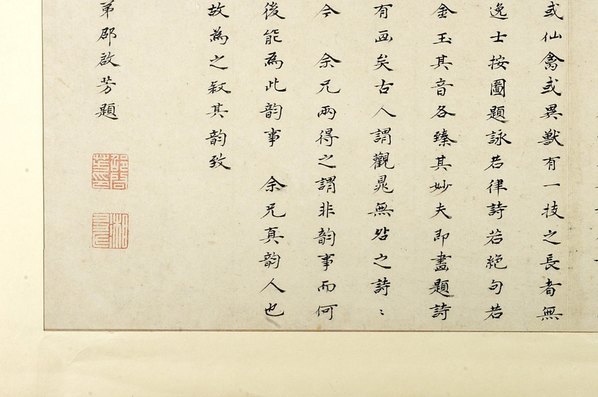 或仙禽或異獸有一技之長者無
逸士按圖題詠若律詩若絕句若
金玉其音各臻其妙夫即畫題詩
有画矣古人謂觀晁無咎之詩〻
今 余兄兩得之謂非韵事而何
後能為此韵事 余兄真韵人也
故為之叙其韵致
弟邵啟芳題